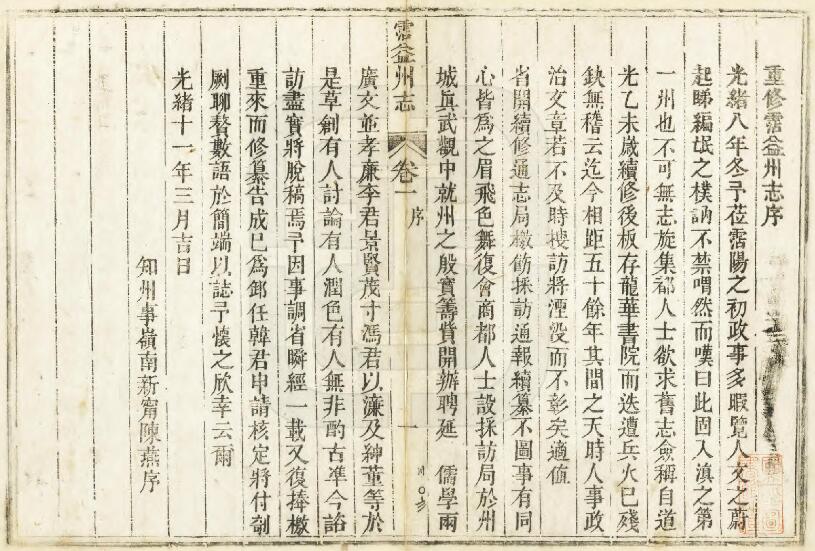 重修霑益州志序
光緒八年冬予莅霑陽之初政事多暇覽人文之蔚
起睇編氓之樸訥不禁喟然而嘆曰此固入滇之第
一州也不可無志旋集都人士欲求舊志僉稱自道
光乙未歲續修後板存龍華書院而迭遭兵火已殘
缺無稽云迄今相距五十餘年其間之天時人事政
治文章若不及時搜訪將湮沒而不彰矣適值
省開續修通志局檄飭採訪通報續纂不圖事有同
心皆為之眉飛色舞復會商都人士設採訪局於州
城真武觀中就州之殷實籌貲開辦聘延 儒學兩
霑益州志 卷一 序 一
廣文並孝廉李君景賢茂才馮君以濂及紳董等於
是草創有人討論有人潤色有人無非酌古準今諮
訪盡實將脫稿焉予因事調省瞬經一載又復捧檄
重來而修纂告成已為卸任韓君申請核定將付剞
劂聊贅數語於簡端以誌予懷之欣幸云爾
光緒十一年三月吉日
知州事嶺南新甯陳燕序